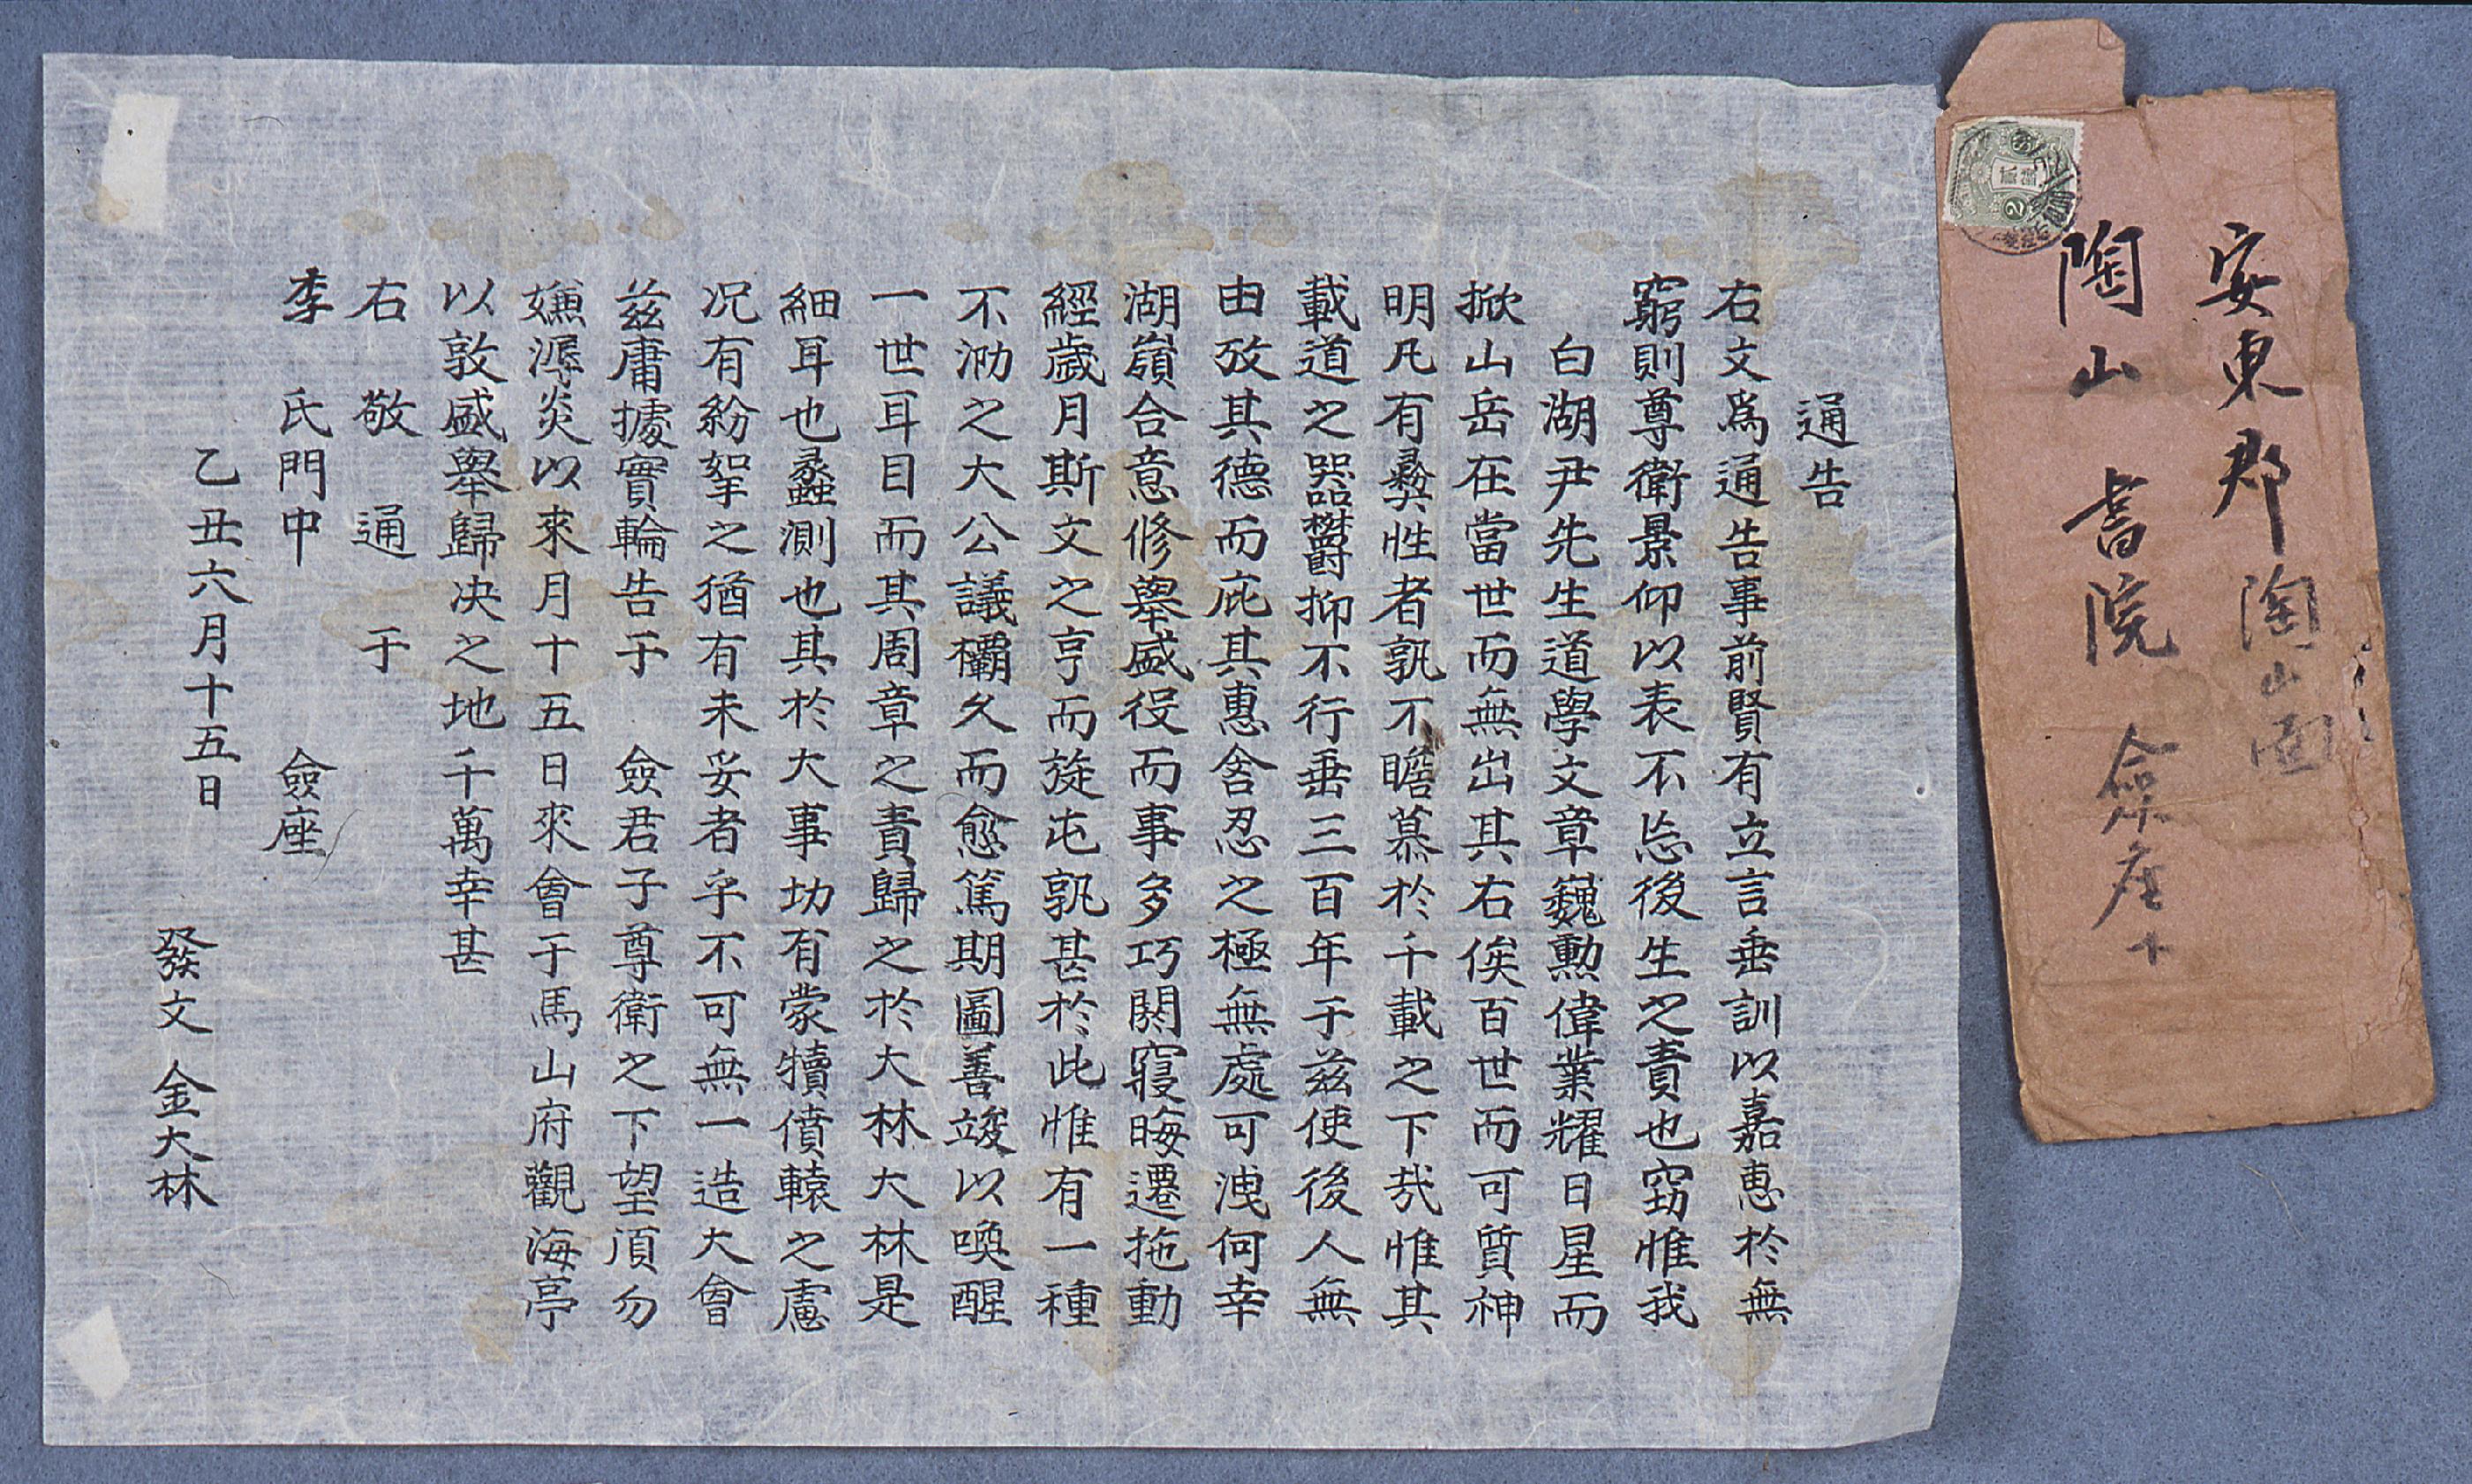 通告
右文爲通告事前賢有立言垂訓以嘉惠於無
窮則尊衛景仰以表不忘後生之責也窃惟我
白湖尹先生道學文章巍勳偉業耀日星而
掀山岳在當世而無出其右俟百世而可質神
明凡有彜性者孰不瞻慕於千載之下㢤惟其
載道之器欝抑不行垂三百年于玆使後人無
由攷其德而庇其惠含忍之極無處可洩何幸
湖嶺合意修擧盛役而事多巧閼寢晦遷拖動
經歲月斯文之亨而旋屯孰甚於此惟有一種
不泐之大公議欛久而愈篤期圖善竣以喚醒
一世耳目而其周章之責歸之於大林大林是
細耳也蠡測也其於大事功有蒙犢僨轅之慮
况有紛挐之猶有未妥者乎不可無一造大會
玆庸據實輪告于 僉君子尊衛之下望湏勿
嫌溽炎以來月十五日來會于馬山府觀海亭
以敦盛擧歸决之地千萬幸甚
右敬通于
李氏門中 僉座
乙丑六月十五日
發文 金大林
安東郡陶山面
陶山書院 僉座
貳錢
2